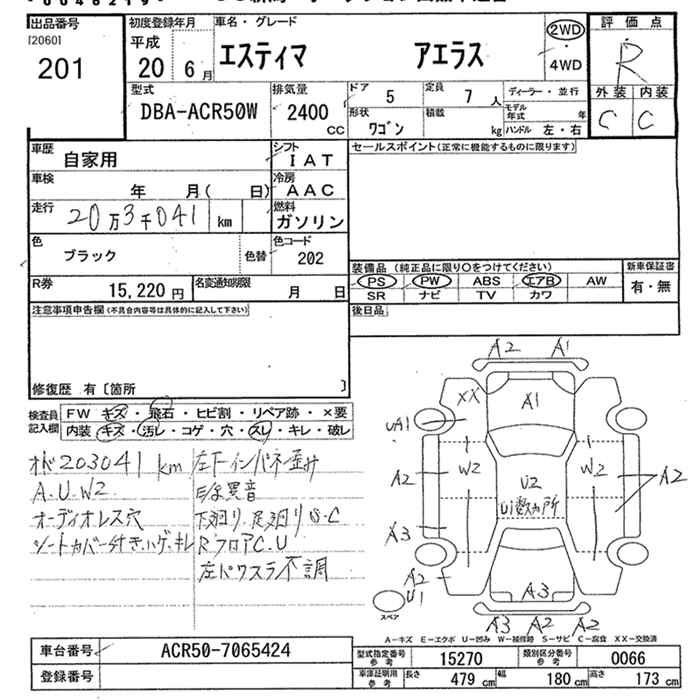 出品番号 初度登録年月 車名・グレード 2WD 評価点
[2060] 平成 エスティマ アエラス ・ R
201 20年 6月 4WD
型式 排気量 ドア 5 定員 7人 ディーラー・並行 外装 内装
DBA-ACR50W 2400cc 形状 ワゴン 積載 kg モデル年式 年 C C
ハンドル 左・右
車歴 自家用 シフト IAT セールスポイント(正常に機能するものに限ります)
車検 年 月( 日) 冷房 AAC
走行 20万3千041 km 燃料 ガソリン
色 ブラック 色替 色コード 202
装備品 (純正品に限り○をつけてください) 新車保証書
R券 15,220円 名変通知期限 月 日 PS PW ABS エアB AW 有・無
SR ナビ TV カワ
注意事項申告欄(不具合内容等は具体的に記入して下さい) 後日品
修復歴 有〔箇所 〕
検査員 FW キズ・飛石・ヒビ割・リペア跡・×要
記入欄 内装 キズ・汚レ・コゲ・穴・スレ・キレ・破レ
オド203041km 左下インパネ歪み
A.U.W2 異音
オーディオレス穴 下廻り、足廻りS・C
シートカバー付き、ハゲ・キレ RフロアC.U
左パワスラ不調
A2 A1
XX A1
UA1
W2 W2
A2 U2 A2
U1数カ所
A3
A2
U1 A3
スペア A3 A2 A2
A-キズ E-エクボ U-凹み W-補修跡 S-サビ C-腐食 XX-交換済
車台番号 ACR50-7065424 型式指定番号 参考 15270 類別区分番号 参考 0066
登録番号 車庫証明用 参考 長さ 479cm 幅 180cm 高さ 173cm